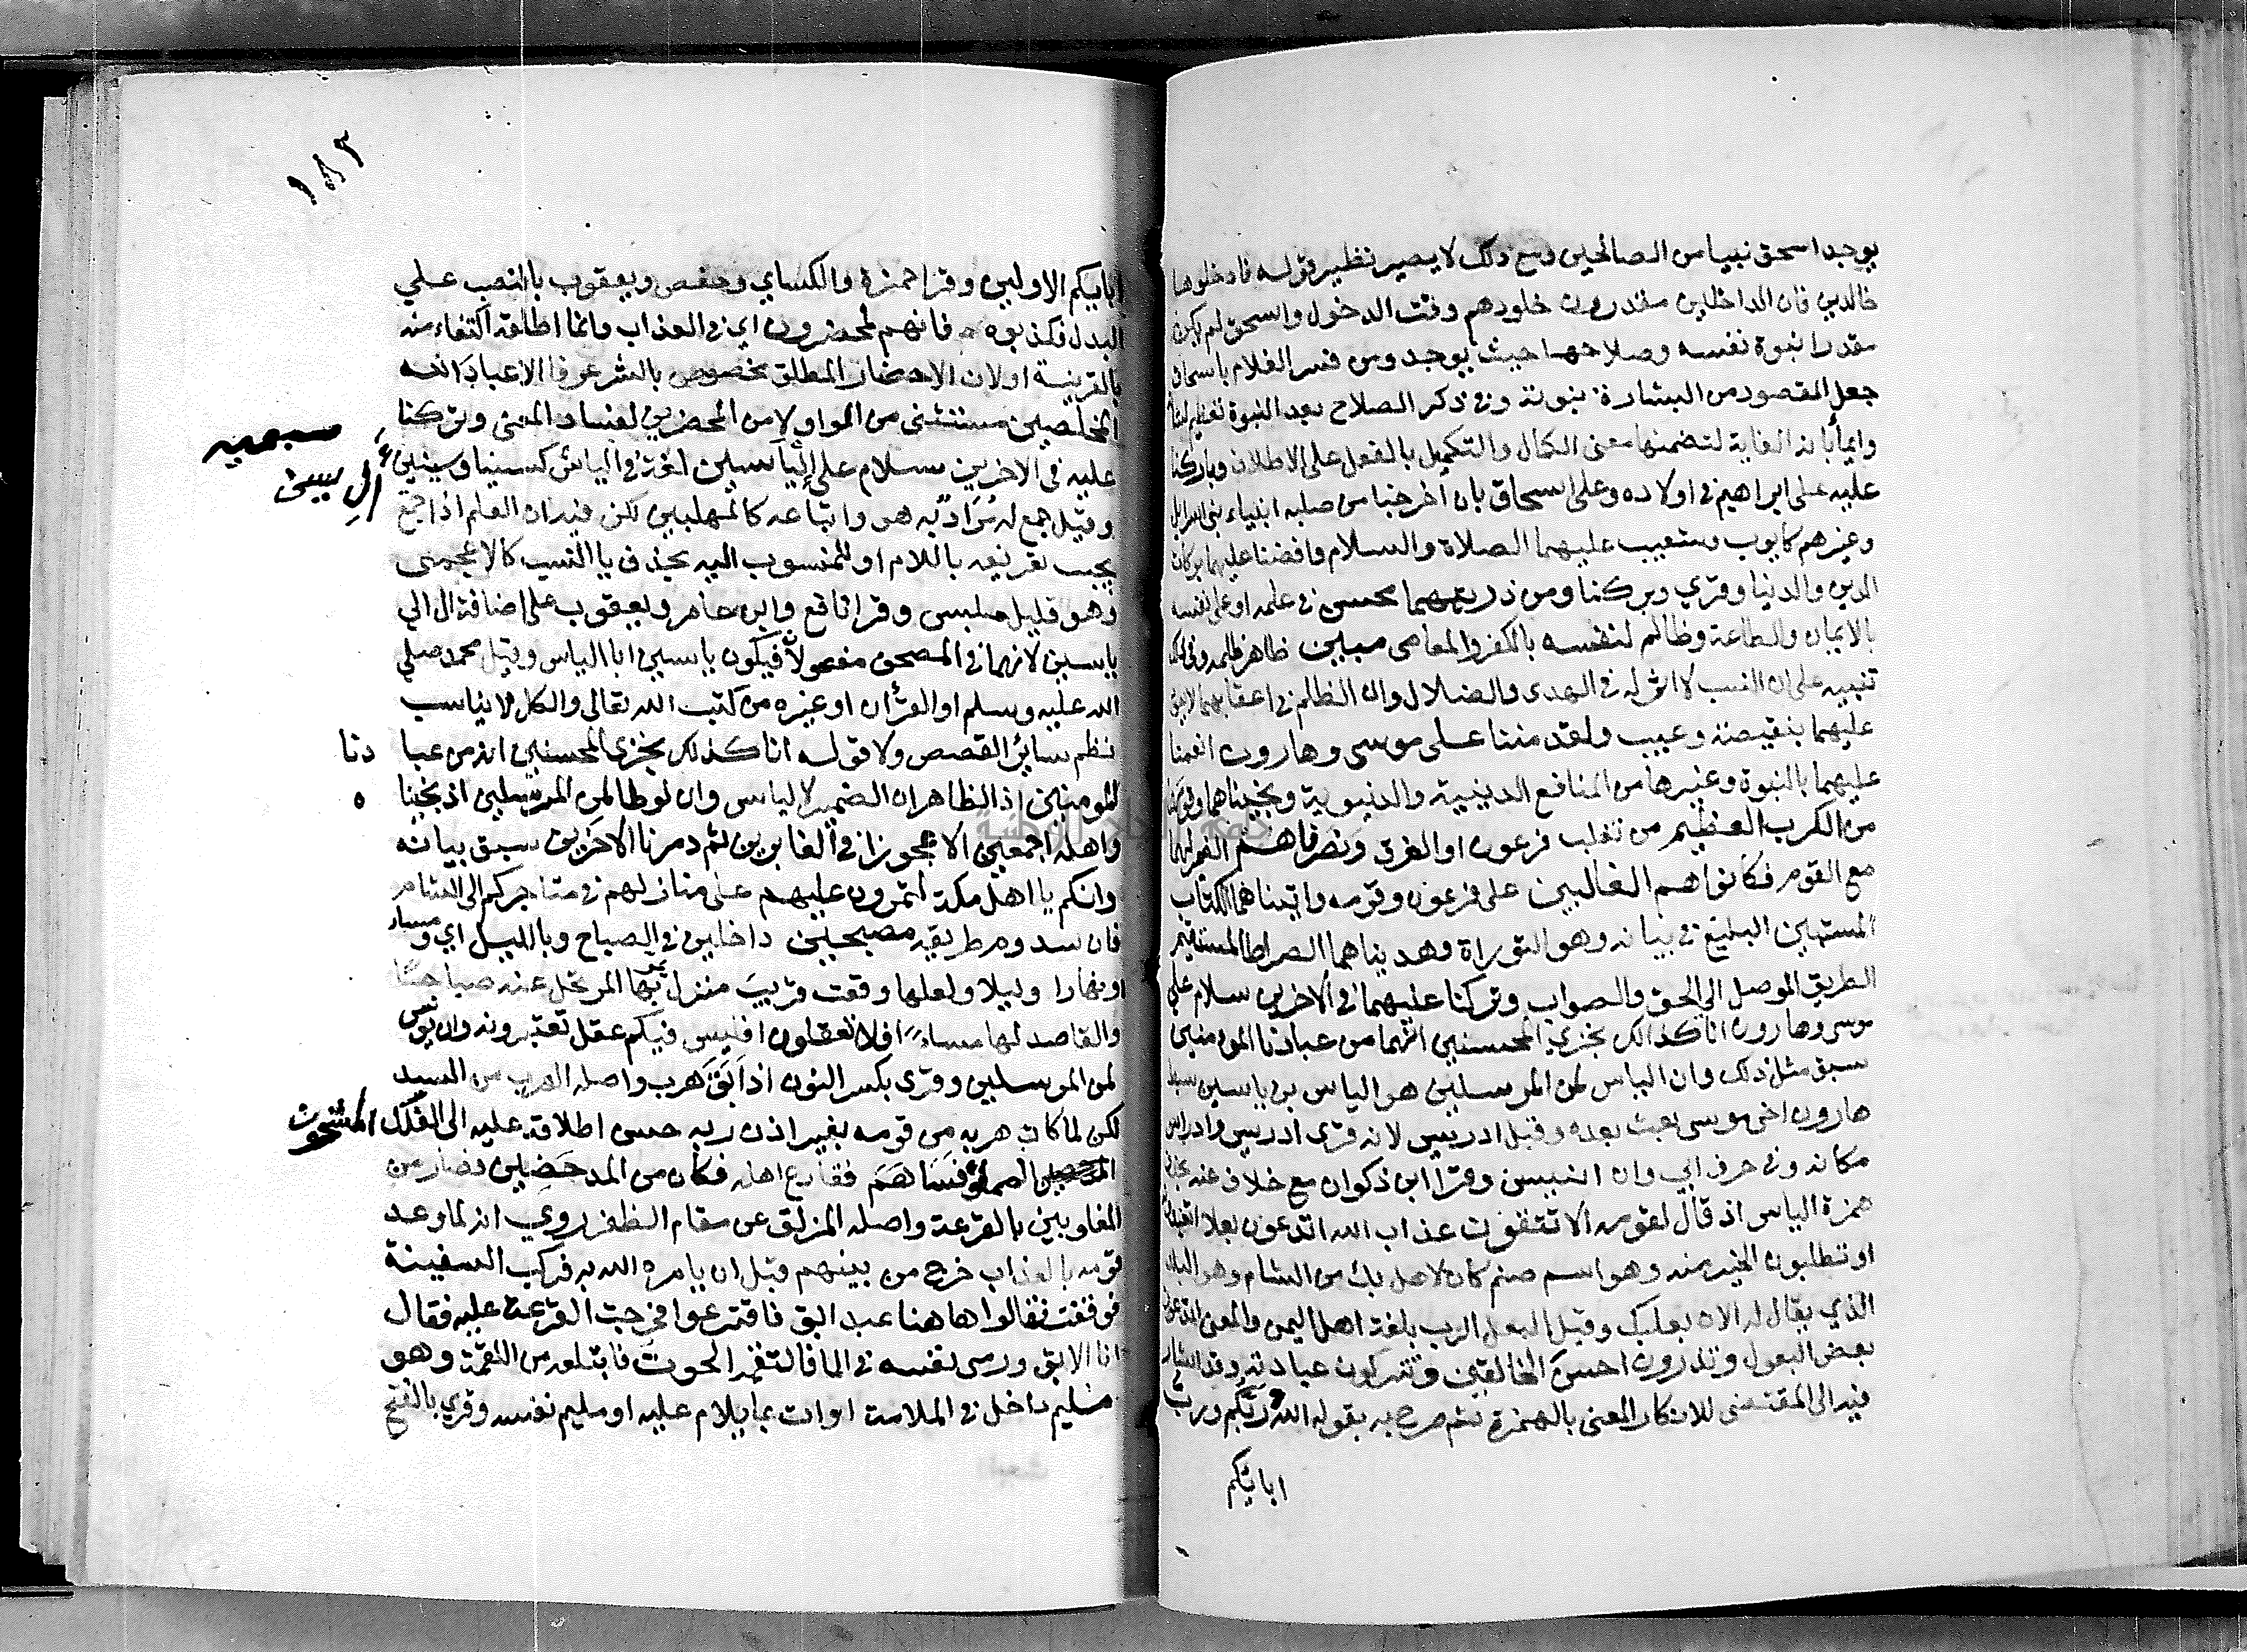 يوجد اسحق نبيا من الصالحين ومع ذلك لا يصير نظير قوله فادخلوها
خالدين فان الداخلين مقدرون خلودهم وقت الدخول واسحق لم يكن
مقدرا نبوة نفسه وصلاحها حيث يوجد ومن فسر الغلام باسحاق
جعل المقصود من البشارة نبوته وفي ذكر الصلاح بعد النبوة تعظيم لشأنه
وايماء بانه الغاية لتضمنها معنى الكمال والتكميل بالفعل على الاطلاق وباركنا
عليه على ابراهيم في اولاده وعلى اسحاق بان اخرجنا من صلبه انبياء بني اسرايل
وغيرهم كايوب وشعيب عليهما الصلاة والسلام وافضنا عليهما بركات
الدين والدنيا وقري وبركنا ومن ذريتهما محسن في علمه او على نفسه
بالايمان والطاعة وظالم لنفسه بالكفر والمعاصي مبين ظاهر ظلمه وفي ذلك
تنبيه على ان النسب لا اثر له في الهدى والضلال وان الظلم في اعقابهما لا يعود
عليهما بنقيصة وعيب ولقد مننا على موسى وهارون انعمنا
عليهما بالنبوة وغيرها من المنافع الدينية والدنيوية ونجيناهما وقومهما
من الكرب العظيم من تغلب فرعون او الغرق ونصرناهم الضمير لهما
مع القوم فكانوا هم الغالبين على فرعون وقومه واتيناهما الكتاب
المستبين البليغ في بيانه وهو التوراة وهديناهما الصراط المستقيم
الطريق الموصل الى الحق والصواب وتركنا عليهما في الاخرين سلام على
موسى وهارون انا كذالك نجزي المحسنين انهما من عبادنا المومنين
سبق مثل ذلك وان الياس لمن المرسلين هو الياس بن ياسين سبط
هارون اخي موسى بعث بعده وقيل ادريس لانه قرى ادريس وادراس
مكانه وفي حرف ابي وان ايليس وقرا ابن ذكوان مع خلاف عنه بحذف
همزة الياس اذ قال لقومه الا تتقون عذاب الله اتدعون بعلا اتعبدونه
او تطلبون الخير منه وهو اسم صنم كان لاهل بك من الشام وهو البلد
الذي يقال له الان بعلبك وقيل البعل الرب بلغة اهل اليمن والمعنى اتدعون
بعض البعول وتذرون احسن الخالقين وتتركون عبادته وقد اشار
فيه الى المقتضى للانكار المعنى بالهمزة ثم صرح به بقوله الله ربكم ورب
ابائكم
١٨٣
ابائكم الاولين وقرا حمزة والكساي وحفص ويعقوب بالنصب على
البدل فكذبوه فانهم لمحضرون اي في العذاب وانما اطلقه اكتفاء منه
بالقرينة او لان الاحضار المطلق مخصوص بالشر عرفا الا عباد الله
المخلصين مستثنى من الواو لا من المحضرين لفساد المعنى وتركنا
عليه في الاخرين سلام على إلياسين لغة في الياس كسينا وسينين
وقيل جمع له مراد به هو واتباعه كالمهلبين لكن فيه ان العلم اذا جمع
يجب تعريفه باللام او للمنسوب اليه بحذف يا النسب كالاعجمين
وهو قليل ملبس وقرا نافع وابن عامر ويعقوب على اضافة ال الى
ياسين لانهما في المصحف مفصولا فيكون ياسين ابا الياس وقيل محمد صلى
الله عليه وسلم او القرأن او غيره من كتب الله تعالى والكل لا يناسب
نظم ساير القصص ولا قوله انا كذلك نجزي المحسنين انه من عبا دنا
المومنين اذ الظاهر ان الضمير لالياس وان لوطا لمن المرسلين اذ نجينا
واهله اجمعين الا عجوزا في الغابرين ثم دمرنا الاخرين سبق بيانه
وانكم يا اهل مكة لتمرون عليهم على منازلهم في متاجركم الى الشام
فان سدوم طريقه مصبحين داخلين في الصباح وبالليل اي ومساء
او نهارا وليلا ولعلها وقعت قريب منزل يمر بها المرتحل عنه صباحا
والقاصد لها مساء افلا تعقلون افليس فيكم عقل تعتبرون وان يونس
لمن المرسلين وقرى بكسر النون اذ ابق هرب واصله الهرب من السيد
لكن لما كان هربه من قومه بغير اذن ربه حسن اطلاقه عليه الى الفلك المشحون
المملو فساهم فقارع اهله فكان من المدحضين فصار من
المغلوبين بالقرعة واصله المزلق عن مقام الظفر روي انه لما وعد
قومه بالعذاب خرج من بينهم قبل ان يامره الله به فركب السفينة
فوقفت فقالوا هاهنا عبد ابق فاقترعوا فخرجت القرعة عليه فقال
انا الابق ورمى نفسه في الما فالتقمه الحوت فابتلعه من اللقمة وهو
مليم داخل في الملامة او ات بما يلام عليه او مليم نفسه وقري بالفتح
سبعيه
أل يسن